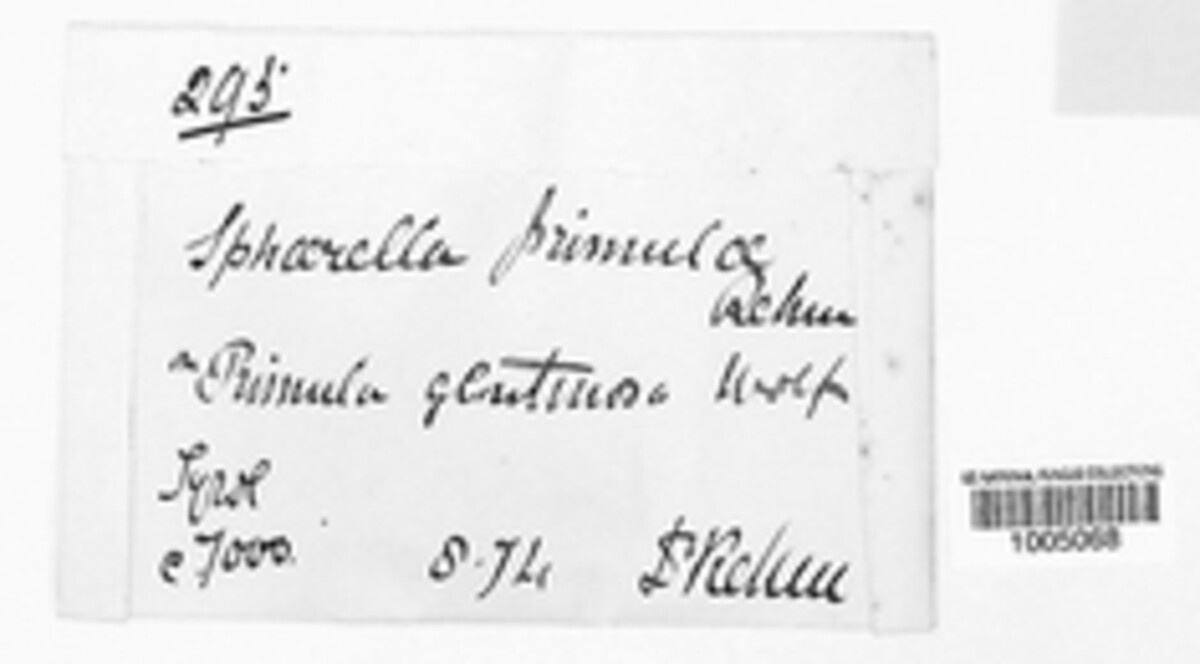 295
Sphaerella primulae
Rehm
Primula glutinosa Wulf
Tyrol
c 7000.
8.74 Dr Rehm
US NATIONAL FUNGUS COLLECTIONS
1005068